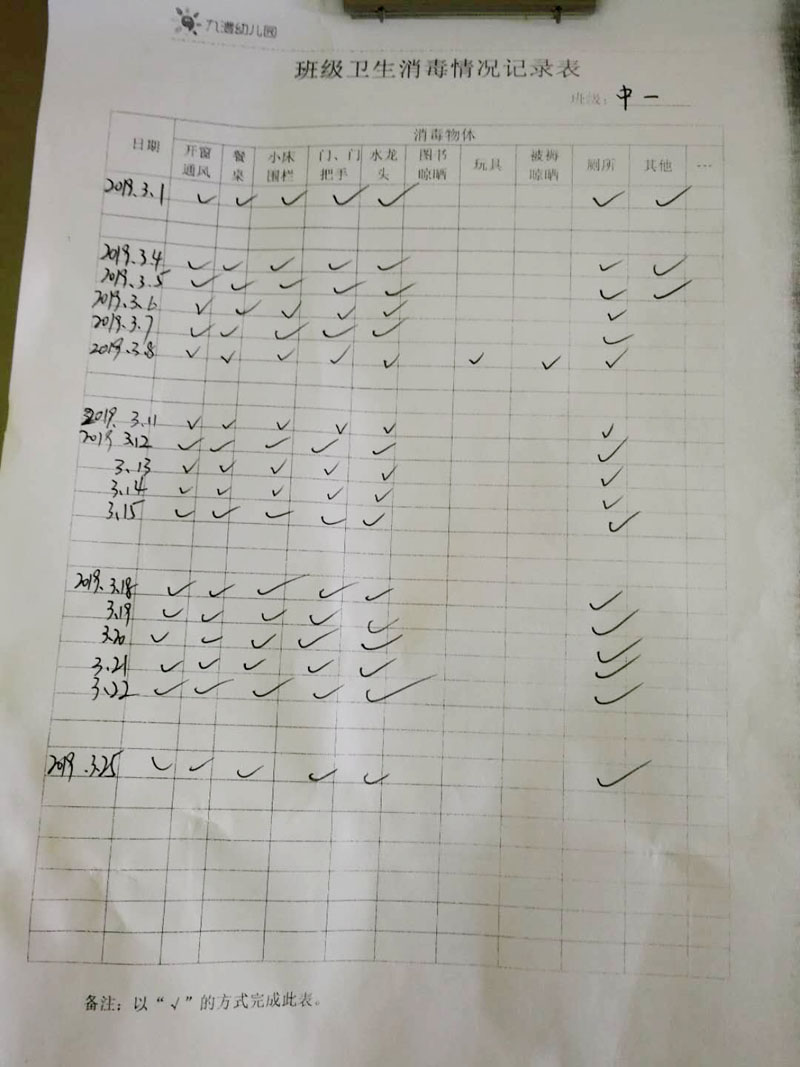 九漕幼儿园
班级卫生消毒情况记录表
班级：中一
日期 消毒物体
开窗通风 餐桌 小床围栏 门、门把手 水龙头 图书晾晒 玩具 被褥晾晒 厕所 其他 …
2019.3.1 ✓ ✓ ✓ ✓ ✓ ✓ ✓
2019.3.4 ✓ ✓ ✓ ✓ ✓ ✓ ✓
2019.3.5 ✓ ✓ ✓ ✓ ✓ ✓ ✓
2019.3.6 ✓ ✓ ✓ ✓ ✓ ✓
2019.3.7 ✓ ✓ ✓ ✓ ✓ ✓
2019.3.8 ✓ ✓ ✓ ✓ ✓ ✓ ✓ ✓
2019.3.11 ✓ ✓ ✓ ✓ ✓ ✓
2019 3.12 ✓ ✓ ✓ ✓ ✓ ✓
3.13 ✓ ✓ ✓ ✓ ✓ ✓
3.14 ✓ ✓ ✓ ✓ ✓ ✓
3.15 ✓ ✓ ✓ ✓ ✓ ✓
2019.3.18 ✓ ✓ ✓ ✓ ✓ ✓
3.19 ✓ ✓ ✓ ✓ ✓ ✓
3.20 ✓ ✓ ✓ ✓ ✓ ✓
3.21 ✓ ✓ ✓ ✓ ✓ ✓
3.22 ✓ ✓ ✓ ✓ ✓ ✓
2019.3.25 ✓ ✓ ✓ ✓ ✓ ✓
备注：以“√”的方式完成此表。